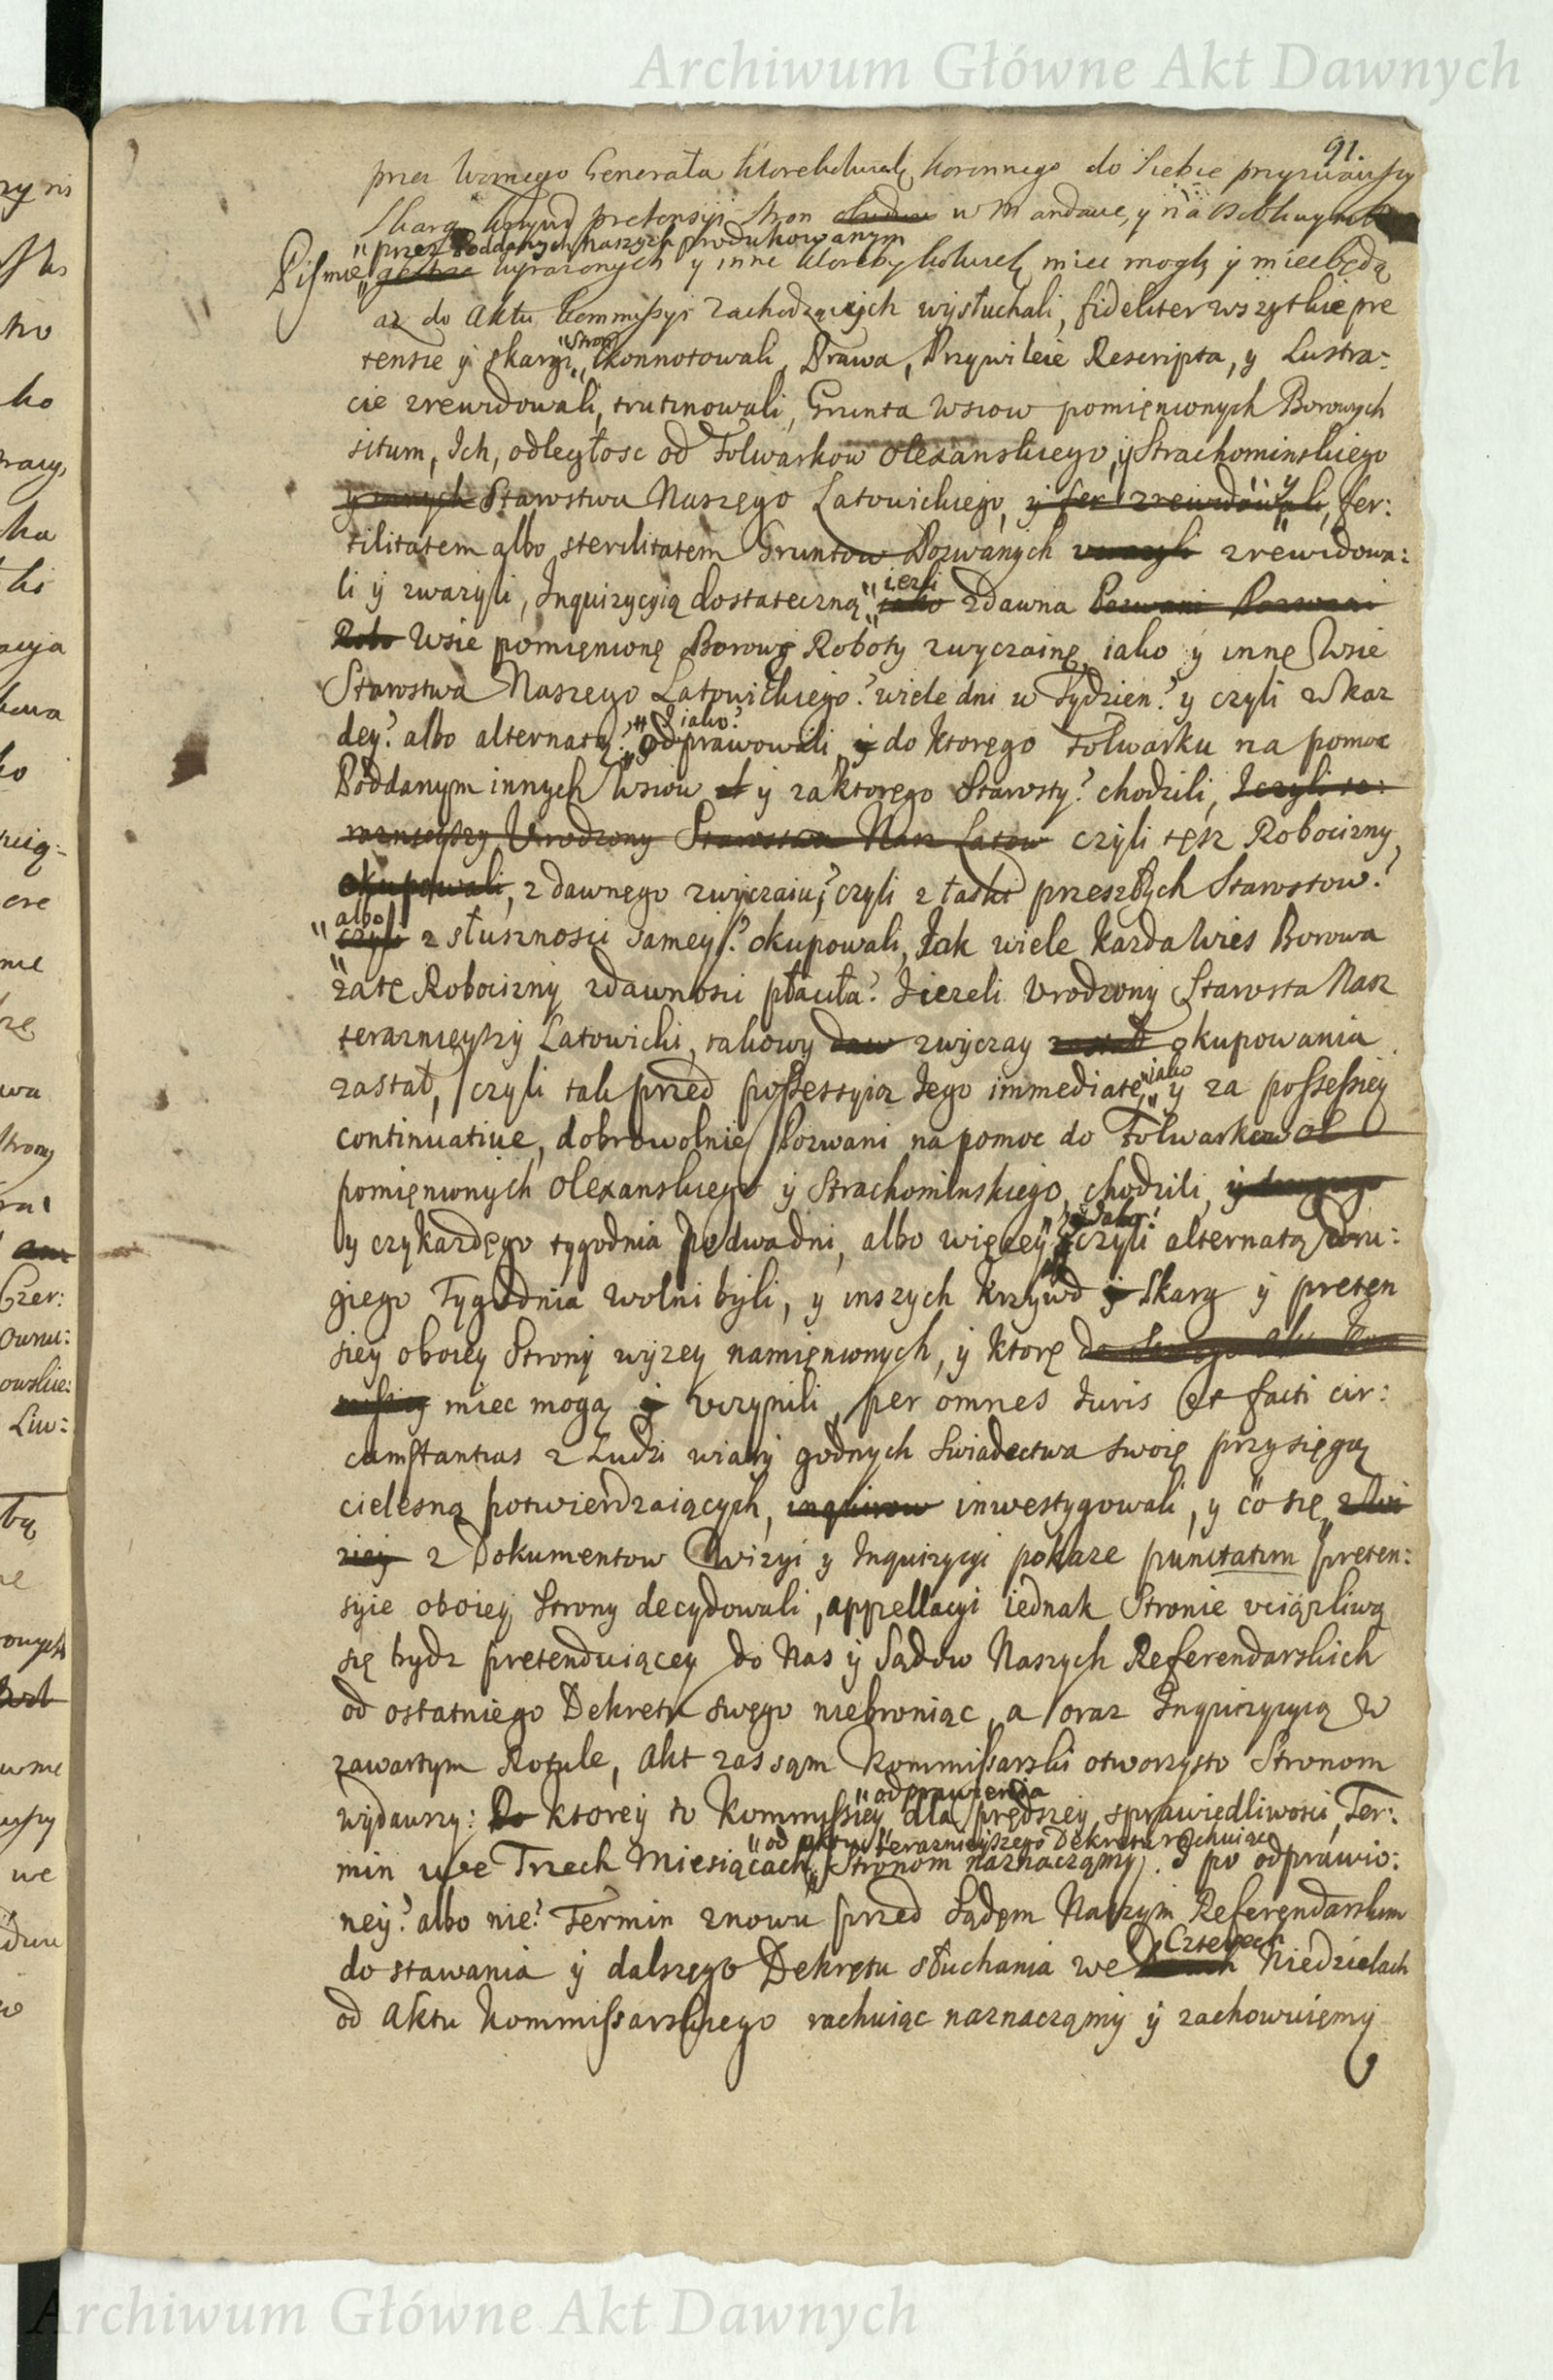 Archiwum Główne Akt Dawnych
91.
przez Woznego Generała ktoregokolwiek koronnego do siebie przyzwawszy
Skarg krzywd pretensyi stron w Mandacie, y na osobnym
"przez Poddanych naszych produkowanym
Pismie wyrazonych y inne ktoreby kolwiek miec mogły y miec będą
az do Aktu kommissyi zachodzących wysłuchali, fideliter wszytkie pre
"Stron
tensie ÿ skargi konnotowali, Prawa, Przywileie Rescripta, y Lustra-
cie zrewidowali, trutinowali, Grunta Wsiow pomięnionych Borowych
situm, Ich, odległosc od Folwarkow Olexanskiego, ÿ Strachominskiego
y innych Starostwa Naszego Latowickiego, ÿ fer zrewidowali, fer:
tilitatem albo sterilitatem Gruntow Pozwanych uwazyli zrewidowa:
li ÿ zwazyli, Inquizycyią dostateczną "iezli tako zdawna Pozwani Pozwani
Robo Wsie pomięnionę Borowę Roboty zwyczainę, iako ÿ innę Wsie
Starostwa Naszego Latowickiego? wiele dni w Tydzien? ÿ czyli z kaz
dey? albo alternatą? "y iako? odprawowali, ÿ do ktorego folwarku na pomoc
Poddanym innych Wsiow ÿ za ktorego Starosty? chodzili, I czyli te:
raznieyszy Urodzony Starosta Nasz Latow czyli tęsz Robocizny,
okupowali, z dawnego zwyczaiu? czyli z łaski przeszłych Starostow?
"albo
czyli z słusznosci samey? okupowali, Iak wiele kazda Wies Borowa
zatę Robociznÿ zdawnosci płaciła? Iiezeli Urodzony Starosta Nasz
teraznieyszÿ Latowicki, takowy daw zwyczay zastał okupowania
zastał, czyli tak przed possessyią Iego immediate, "iako ÿ za possessiey
continuative, dobrowolnie Pozwani na pomoc do Folwarkow Ol
pomięnionych Olexanskiego ÿ Strachominskiego, chodzili, ÿ drugiego
y czy kazdęgo tygodnia po dwa dni, albo więcey czyli alternatą dru:
giego Tygodnia wolni byli, y inszych krzywd ÿ Skarg ÿ pretęn
siey oboiey Strony wyzey namięnionych, ÿ ktorę do
missiey miec mogą ÿ uczynili, per omnes Iuris et facti cir:
cumstantias z Ludzi wiary godnych swiadectwa swoię przysięgą
cielesną potwierdzaiących, inquirow inwestygowali, y co się
z Dokumentow Wizyi y Inquizycyi pokaze punctatim preten:
syie oboiey Strony decydowali, appellacyi iednak Stronie uciązliwą
się bydz pretenduiącey do Nas ÿ Sądow Naszych Referendarskich
od ostatniego Dekretu swęgo niebroniąc, a oraz Inquizycyią w
zawartym Rotule, Akt zas sąm Kommissarski otworzysto Stronom
wydawszy: Do ktorey to Kommissiey "odprawienia dla prędszey sprawiedliwosci, Ter:
"od teraznieyszego Dekretu rachuiąc
min we Trzech Miesiącach, Stronom naznaczamy. I po odprawio:
neÿ? albo nie? Termin znowu przed Sądęm Naszym Referęndarskim
do stawania ÿ dalszęgo Dekrętu słuchania we Czterech Niedzielach
od Aktu Kommissarskiego rachuiąc naznacząmÿ ÿ zachowuięmy
Archiwum Główne Akt Dawnych